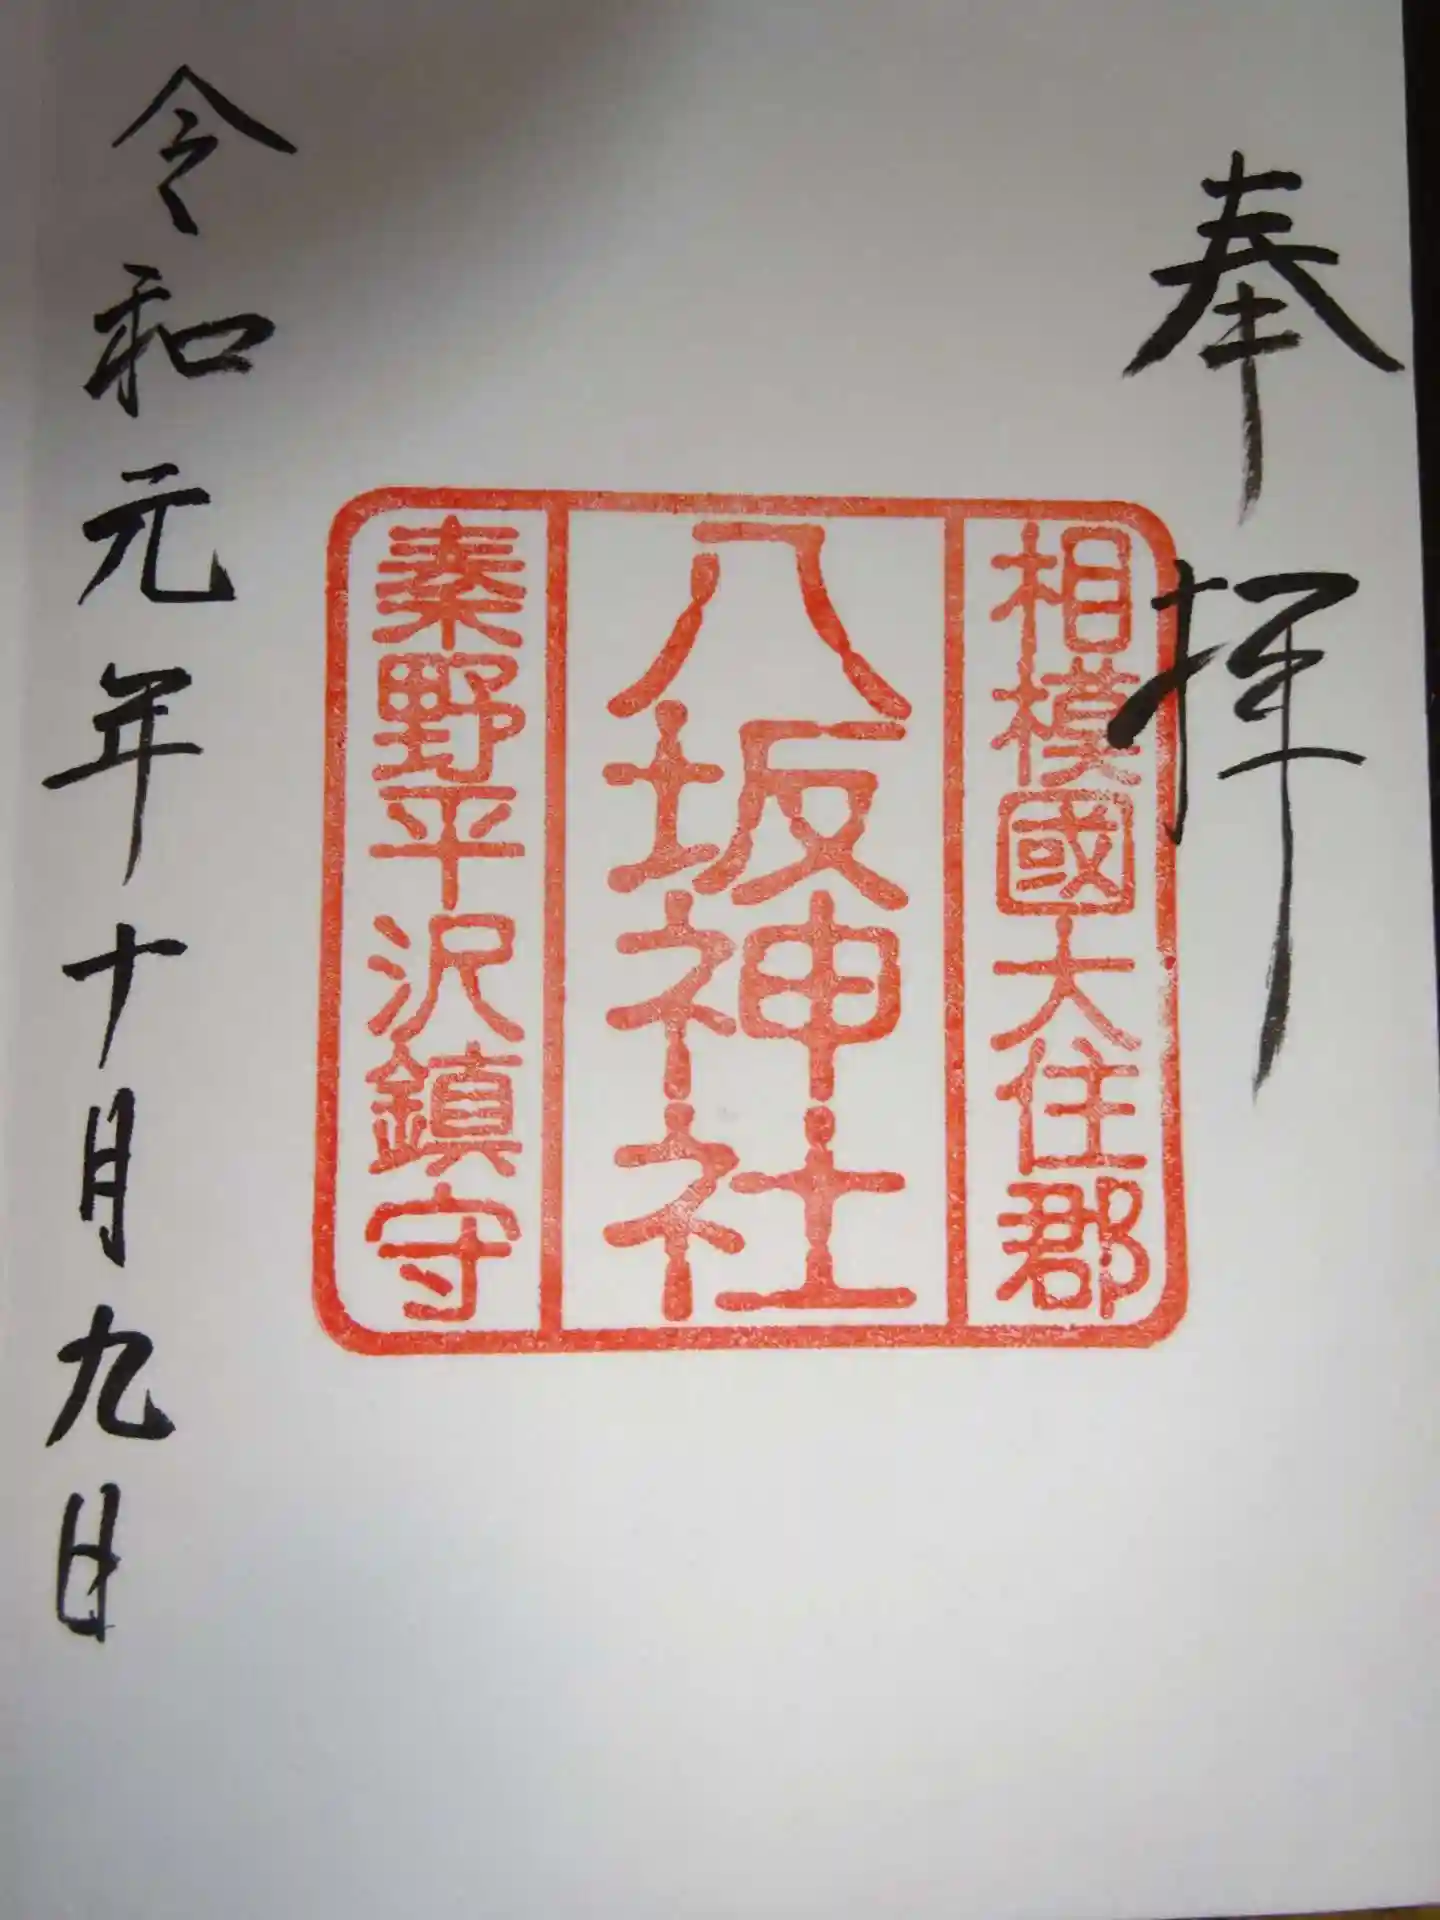 奉拝
相模國大住郡
八坂神社
秦野平沢鎮守
令和元年十月九日